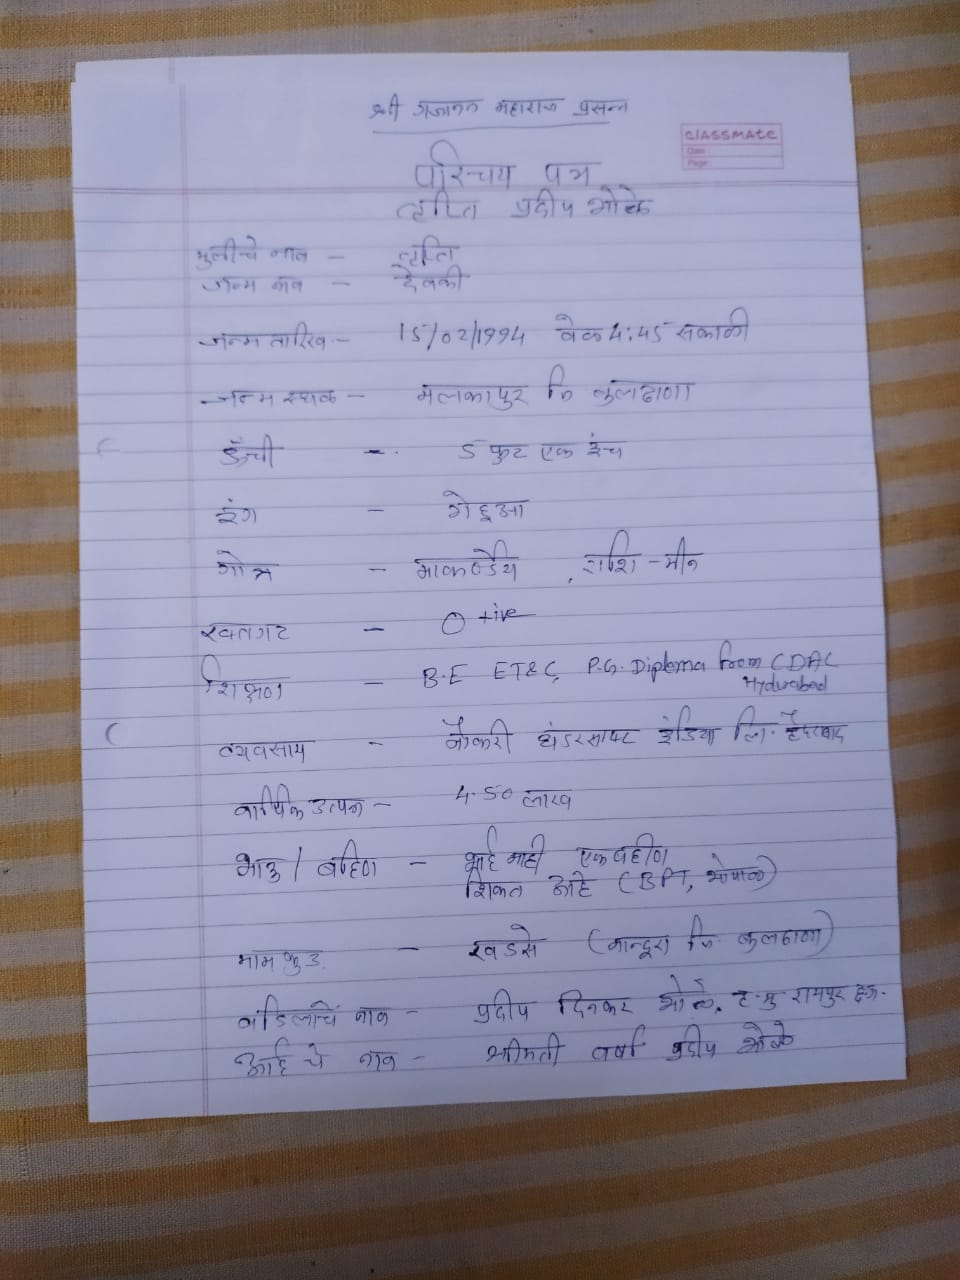 श्री गजानन महाराज प्रसन्न
classmate
Date :
Page :
परिचय पत्र
तृप्ति प्रदीप भोळे
मुलीचे नाव - तृप्ति
जन्म नाव - देवकी
जन्म तारिख - 15/02/1994 वेळ 4:45 सकाळी
जन्म स्थळ - मलकापुर जि बुलढाणा
ऊँची - 5 फुट एक इंच
रंग - गेहूआ
गोत्र - मार्कण्डेय , राशि - मीन
रक्तगट - O +ive
शिक्षण - B.E ET&C, P.G. Diploma from CDAC
Hyderabad
व्यवसाय - नौकरी थंडरसाफ्ट इंडिया लि. हैदराबाद
वार्षिक उत्पन्न - 4.50 लाख
भाऊ / बहिण - भाई नाही एक बहीण
शिकत आहे (BPT, भोपाळ)
माम कुळ - खडसे (नान्दुरा जि. बुलढाणा)
वडिलांचे नाव - प्रदीप दिनकर भोळे, ह.मु रायपुर छ.ग.
आई चे नाव - श्रीमती वर्षा प्रदीप भोळे